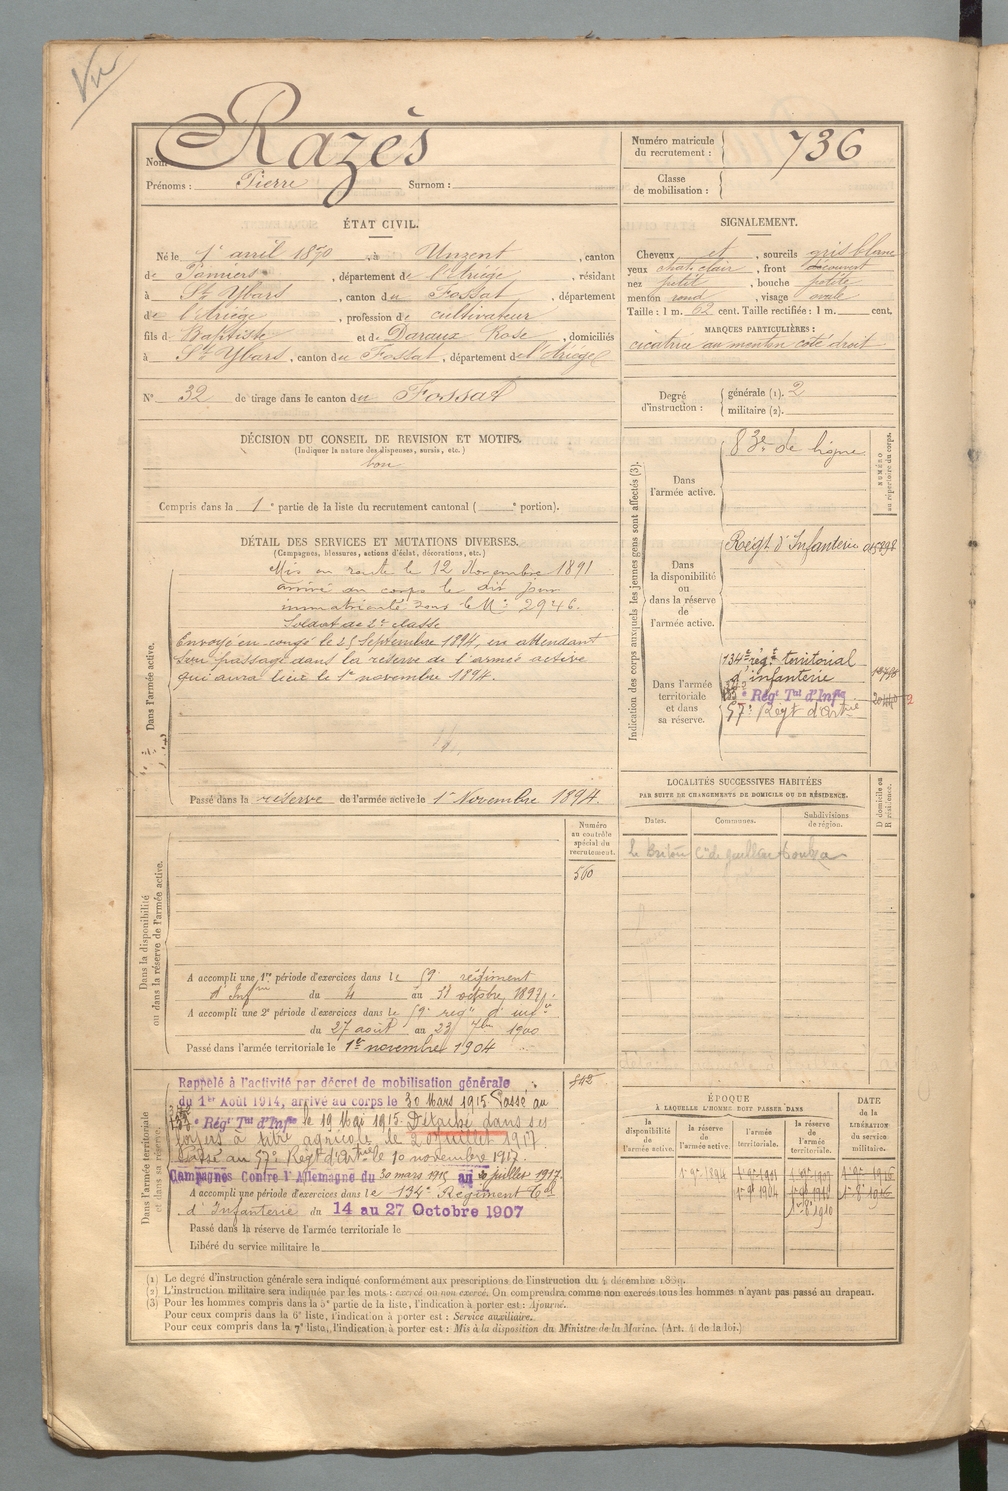 Vu
Nom Razès
Prénoms : Pierre Surnom :
Numéro matricule du recrutement : 736
Classe de mobilisation :
ÉTAT CIVIL.
Né le 1er avril 1870, à Unzent, canton
de Pamiers, département de l'Ariége, résidant
à St Ybars, canton du Fossat, département
de l'Ariége, profession de cultivateur
fils de Baptiste et de Daraux Rose, domiciliés
à St Ybars, canton du Fossat, département de l'Ariége
N° 32 de tirage dans le canton du Fossat
SIGNALEMENT.
Cheveux et, sourcils gris blanc
yeux chat. clair, front découvert
nez petit, bouche petite
menton rond, visage ovale
Taille : 1 m. 62 cent. Taille rectifiée : 1 m. cent.
MARQUES PARTICULIÈRES :
cicatrice au menton coté droit
Degré d'instruction : générale (1). 2
militaire (2).
DÉCISION DU CONSEIL DE REVISION ET MOTIFS.
(Indiquer la nature des dispenses, sursis, etc.)
bon
Compris dans la 1e partie de la liste du recrutement cantonal ( e portion).
DÉTAIL DES SERVICES ET MUTATIONS DIVERSES.
(Campagnes, blessures, actions d'éclat, décorations, etc.)
Dans l'armée active.
Mis en route le 12 Novembre 1891
arrivé au corps le dit jour
immatriculé sous le N° 2946.
Soldat de 2e classe
Envoyé en congé le 25 Septembre 1894, en attendant
son passage dans la réserve de l'armée active
qui aura lieu le 1er novembre 1894.
Passé dans la réserve de l'armée active le 1er Novembre 1894.
Indication des corps auxquels les jeunes gens sont affectés (3).
NUMÉRO au répertoire du corps.
Dans l'armée active.
83e de ligne
Dans la disponibilité ou dans la réserve de l'armée active.
Régt d'Infanterie
Dans l'armée territoriale et dans sa réserve.
134e régt territorial
d'infanterie
e Régt Tal d'Infie
57e Régt d'Artie
LOCALITÉS SUCCESSIVES HABITÉES
PAR SUITE DE CHANGEMENTS DE DOMICILE OU DE RÉSIDENCE.
Dates. Communes. Subdivisions de région.
D domicile ou R résidence.
Dans la disponibilité ou dans la réserve de l'armée active.
Numéro au contrôle spécial du recrutement.
560
A accompli une 1re période d'exercices dans le 59e régiment
d'Infrie du 4 au 31 octobre
A accompli une 2e période d'exercices dans le 59e regt d'infie
du 27 août au 23 7bre 1900
Passé dans l'armée territoriale le 1er novembre 1904
Dans l'armée territoriale et dans sa réserve.
842
Rappelé à l'activité par décret de mobilisation générale
du 1er Août 1914, arrivé au corps le 30 Mars 1915 Passé au
e Régt Tal d'Infie le 19 Mai 1915 Détaché dans ses
foyers à titre agricole le 20 Juillet 1917
Passé au 57e Régt d'Artie le 10 novembre 1917.
Campagnes Contre l'Allemagne du 30 mars 1915 au 20 juillet 1917.
A accompli une période d'exercices dans le 134e Régiment Tal
d'Infanterie du 14 au 27 Octobre 1907
Passé dans la réserve de l'armée territoriale le
Libéré du service militaire le
ÉPOQUE
À LAQUELLE L'HOMME DOIT PASSER DANS
la disponibilité de l'armée active. la réserve de l'armée active l'armée territoriale. la réserve de l'armée territoriale.
DATE de la LIBÉRATION du service militaire.
(1) Le degré d'instruction générale sera indiqué conformément aux prescriptions de l'instruction du 4 décembre 1889.
(2) L'instruction militaire sera indiquée par les mots : exercé ou non exercé. On comprendra comme non exercés tous les hommes n'ayant pas passé au drapeau.
(3) Pour les hommes compris dans la 5e partie de la liste, l'indication à porter est : Ajourné.
Pour ceux compris dans la 6e liste, l'indication à porter est : Service auxiliaire.
Pour ceux compris dans la 7e liste, l'indication à porter est : Mis à la disposition du Ministre de la Marine. (Art. 4 de la loi.)